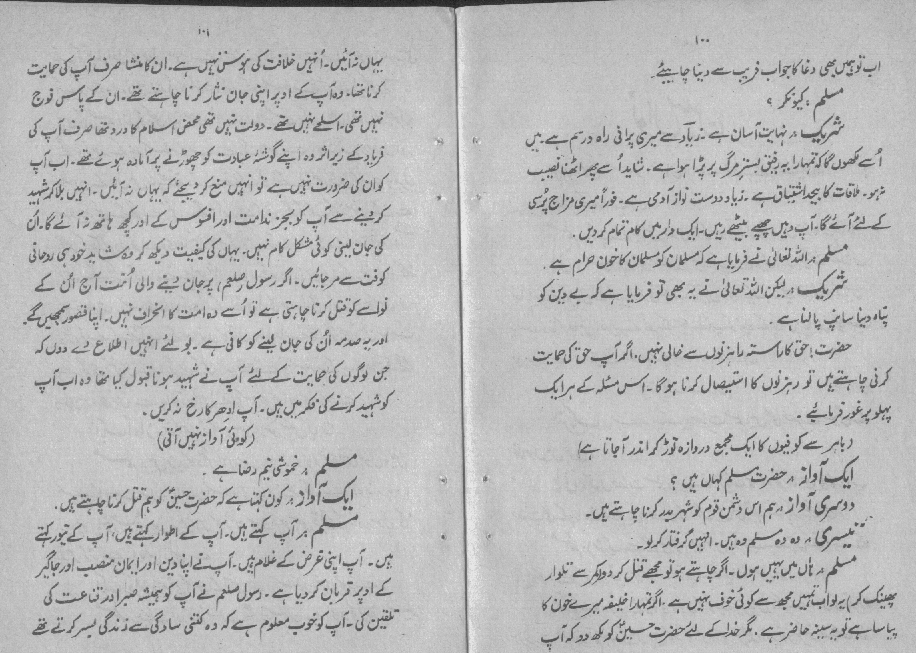 ۱۰۰
اب تو ہمیں بھی دغا کا جواب فریب سے دینا چاہیئے۔
مسلم :۔ کیونکر ؟
شریک :۔ نہایت آسان ہے۔ زیاد سے میری پرانی راہ و رسم ہے۔ میں
اُسے لکھوں گا کہ تمہارا یہ رفیق بسترِ مرگ پر پڑا ہوا ہے۔ شاید اُسے پھر اٹھنا نصیب
نہ ہو۔ ملاقات کا بیحد اشتیاق ہے۔ زیاد دوست نواز آدمی ہے۔ فوراً میری مزاج پُرسی
کے لئے آئے گا۔ آپ وہیں چھپے بیٹھے رہیں۔ ایک وار میں کام تمام کر دیں۔
مسلم :۔ اللہ تعالیٰ نے فرمایا ہے کہ مسلمان کو مسلمان کا خون حرام ہے۔
شریک :۔ لیکن اللہ تعالیٰ نے یہ بھی تو فرمایا ہے کہ بے دین کو
پناہ دینا سانپ پالنا ہے۔
حضرت! حق کا راستہ راہزنوں سے خالی نہیں، اگر آپ حق کی حمایت
کرنی چاہتے ہیں تو رہزنوں کا استیصال کرنا ہو گا۔ اس مسئلہ کے ہر ایک
پہلو پر غور فرمائیے۔
(باہر سے کوفیوں کا ایک مجمع دروازہ توڑ کر اندر آ جاتا ہے)
ایک آواز :۔ حضرت مسلم کہاں ہیں ؟
دوسری آواز :۔ ہم اس دشمن قوم کو شہر بدر کرنا چاہتے ہیں۔
تیسری :۔ وہ وہ مسلم وہ ہیں۔ انہیں گرفتار کر لو۔
مسلم :۔ ہاں میں یہیں ہوں۔ اگر چاہتے ہو تو مجھے قتل کر دو (کمر سے تلوار
پھینک کر) یہ لو اب تمہیں مجھ سے کوئی خوف نہیں ہے۔ اگر تمہارا خلیفہ میرے خون کا
پیاسا ہے تو یہ سینہ حاضر ہے۔ مگر خدا کے لئے حضرت حسین کو لکھ دو کہ آپ
۱۰۱
یہاں نہ آئیں۔ اُنہیں خلافت کی ہوس نہیں ہے۔ ان کا منشا صرف آپ کی حمایت
کرنا تھا۔ وہ آپ کے اوپر اپنی جان نثار کرنا چاہتے تھے۔ ان کے پاس فوج
نہیں تھی۔ اسلحے نہیں تھے۔ دولت نہیں تھی محض اسلام کا درد تھا صرف آپ کی
فریاد کے زیر اثر وہ اپنے گوشۂ عبادت کو چھوڑنے پر آمادہ ہوئے تھے۔ اب آپ
کو ان کی ضرورت نہیں ہے تو انہیں منع کر دیجئے کہ یہاں نہ آئیں۔ انہیں بلا کر شہید
کر دینے سے آپ کو بجز ندامت اور افسوس کے اور کچھ ہاتھ نہ آئے گا۔ اُن
کی جان لینی کوئی مشکل کام نہیں۔ یہاں کی کیفیت دیکھ کر وہ شاید خود ہی روحانی
کوفت سے مر جائیں۔ اگر رسول صلعم پر جان دینے والی اُمت آج اُن کے
نواسے کو قتل کرنا چاہتی ہے تو اُسے وہ امت کا انحراف نہیں۔ اپنا قصور سمجھیں گے۔
اور یہ صدمہ اُن کی جان لینے کو کافی ہے۔ بولئے انہیں اطلاع دے دوں کہ
جن لوگوں کی حمایت کے لئے آپ نے شہید ہونا قبول کیا تھا وہ اب آپ
کو شہید کرنے کی فکر میں ہیں۔ آپ ادھر کا رخ نہ کریں۔
(کوئی آواز نہیں آتی)
مسلم :۔ خموشی نیم رضا ہے۔
ایک آواز :۔ کون کہتا ہے کہ حضرت حسین کو ہم قتل کرنا چاہتے ہیں۔
مسلم :۔ آپ کہتے ہیں۔ آپ کے اطوار کہتے ہیں، آپ کے تیور کہتے
ہیں۔ آپ اپنی غرض کے غلام ہیں۔ آپ نے اپنا دین اور ایمان منصب اور جاگیر
کے اوپر قربان کر دیا ہے۔ رسول صلعم نے آپ کو ہمیشہ صبر اور قناعت کی
تلقین کی۔ آپ کو خوب معلوم ہے کہ وہ کتنی سادگی سے زندگی بسر کرتے تھے